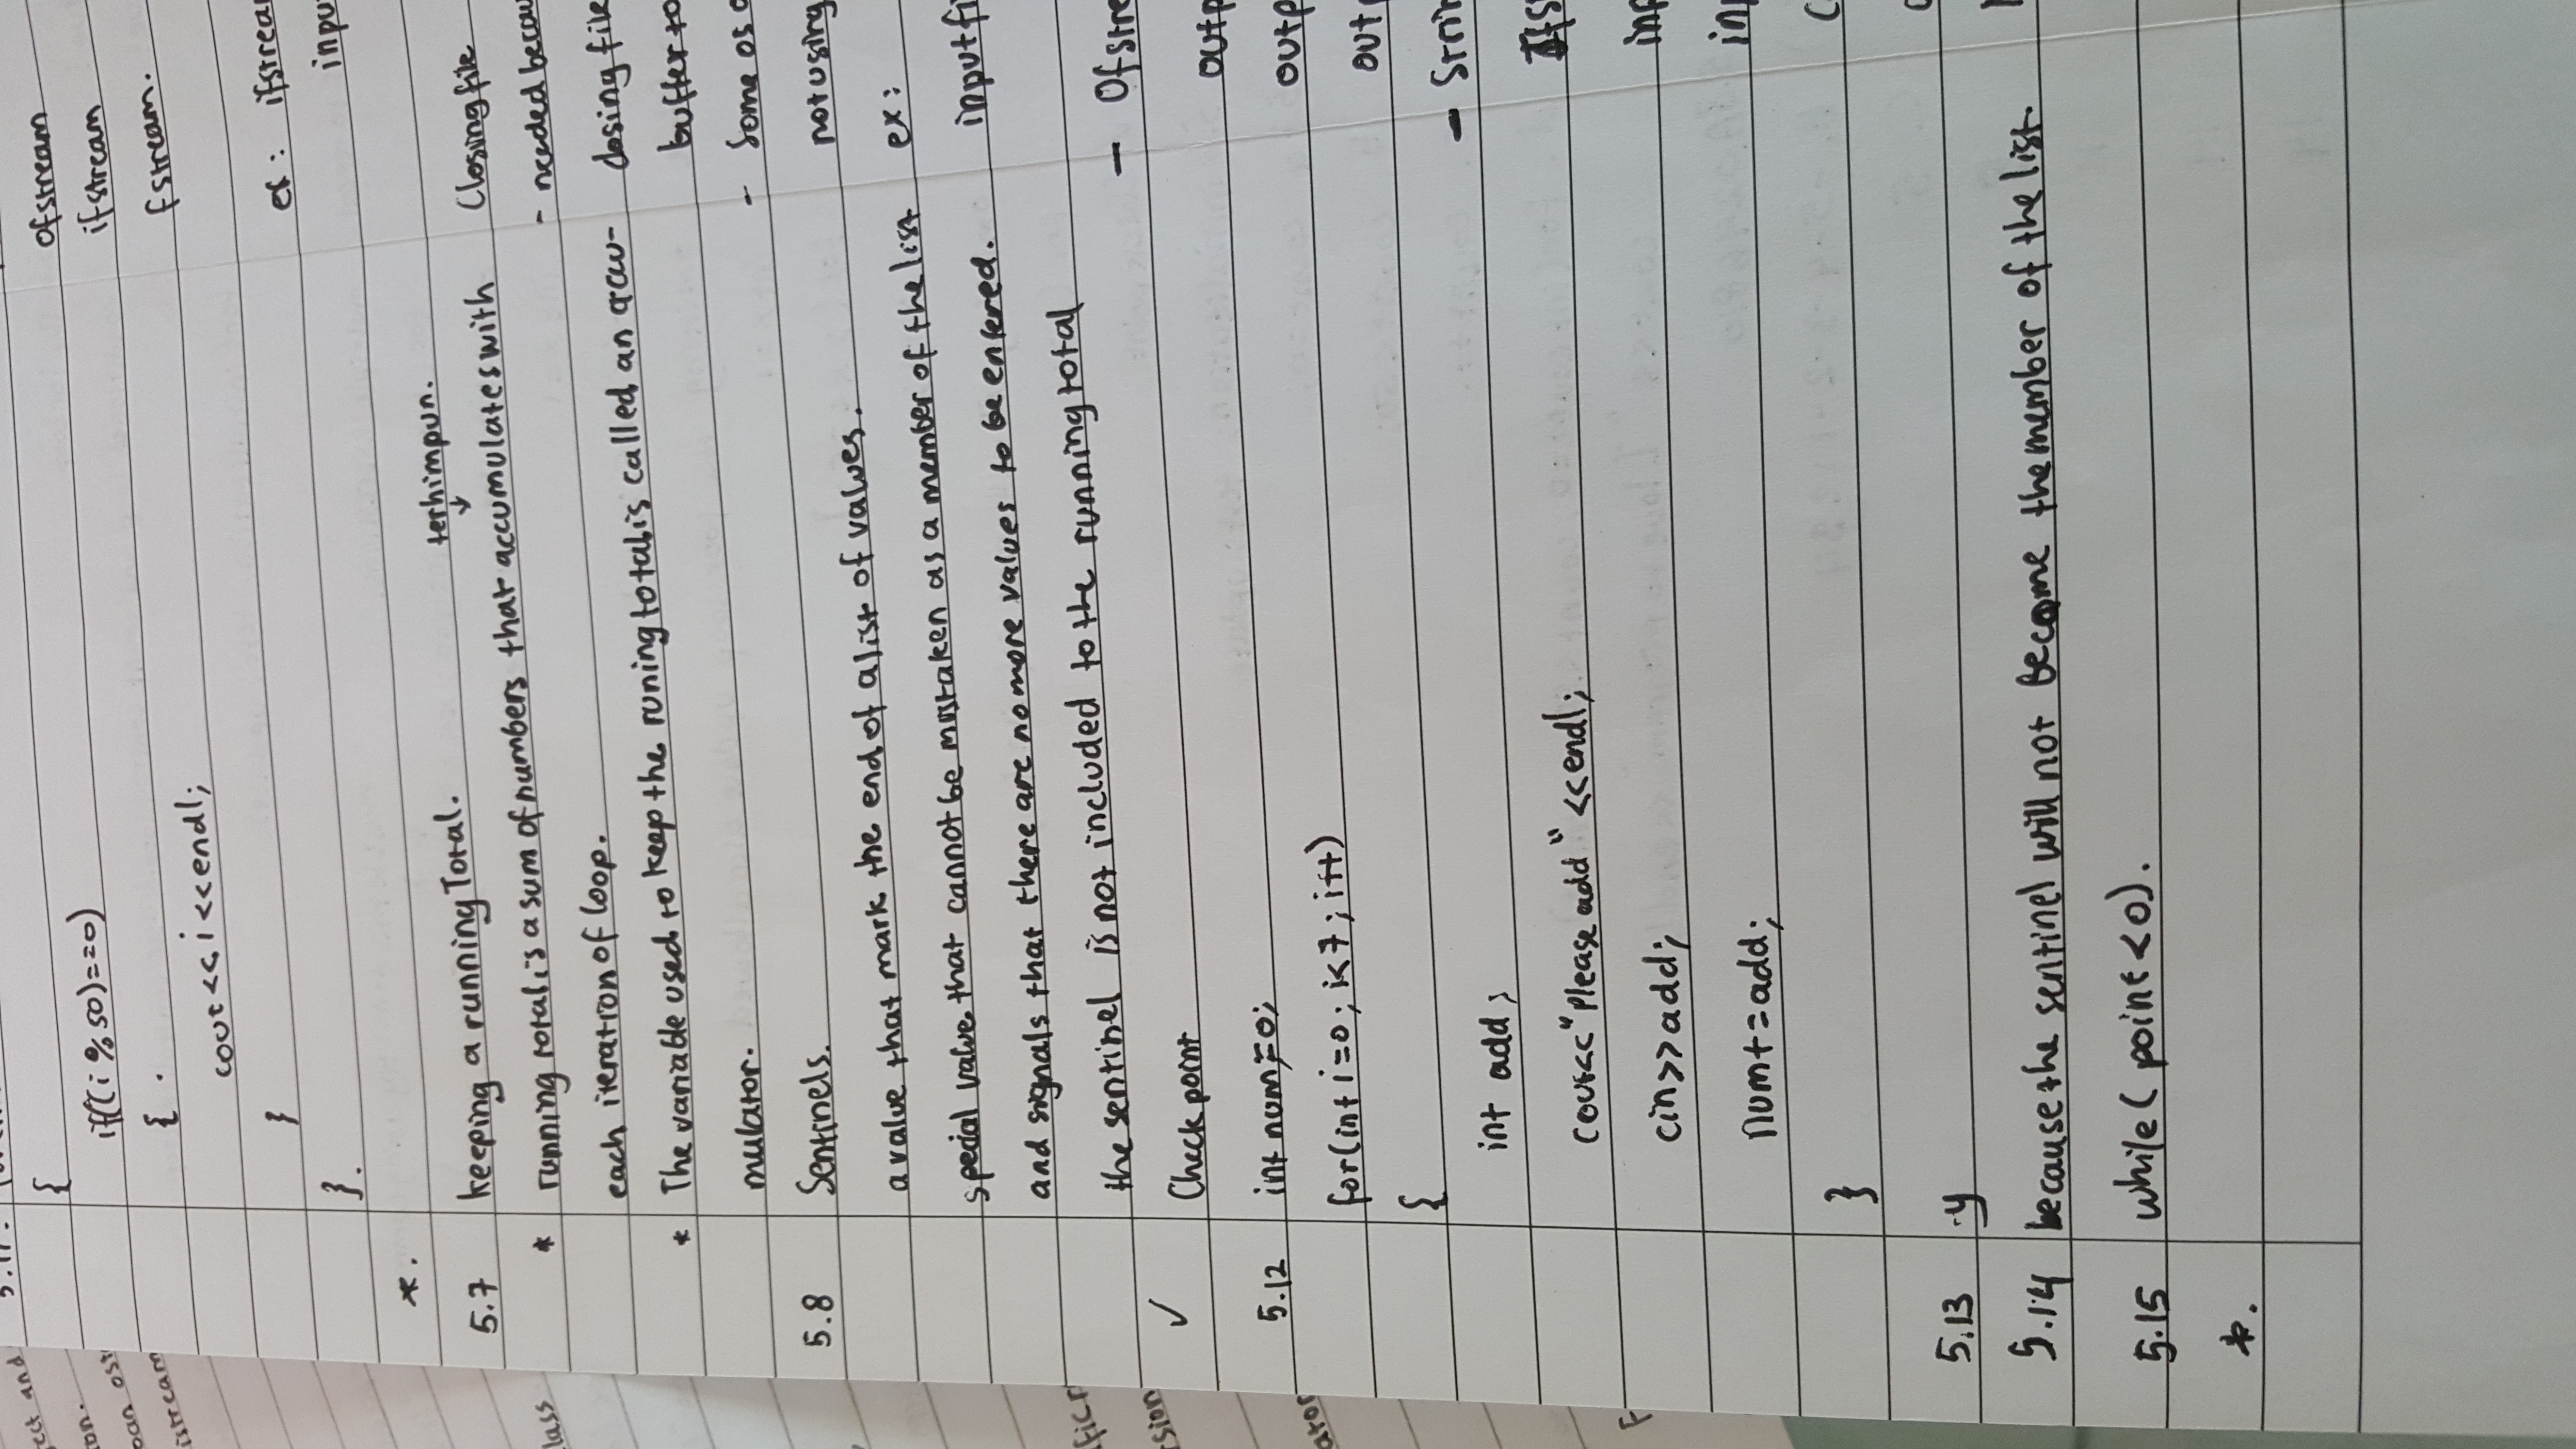 ect and
on.
istream
lass
{
if((i%50)==0)
{
cout<<i<<endl;
}
}.
*.
5.7 keeping a running Total.
terhimpun.
* running total is a sum of numbers that accumulates with
each iteration of loop.
* The variable used to keep the runing total is called an accu-
mulator.
5.8 Sentinels.
a value that mark the end of a list of values.
special value that cannot be mistaken as a member of the list
and signals that there are no more values to be entered.
the sentinel is not included to the running total
✓ Check point
5.12 int num=0;
for(int i=0; i<7; i++)
{
int add;
cout<<"Please add"<<endl;
cin>>add;
num+=add;
}
5.13 y
5.14 because the sentinel will not become the member of the list.
5.15 while( point<0).
*.
ofstream
ifstream
fstream.
ex: ifstrea
inpu
Closing file
- needed becau
closing file
buffer to
- Some os
not using
ex:
input fi
- Ofstre
outp
outp
out
- Strin
inp